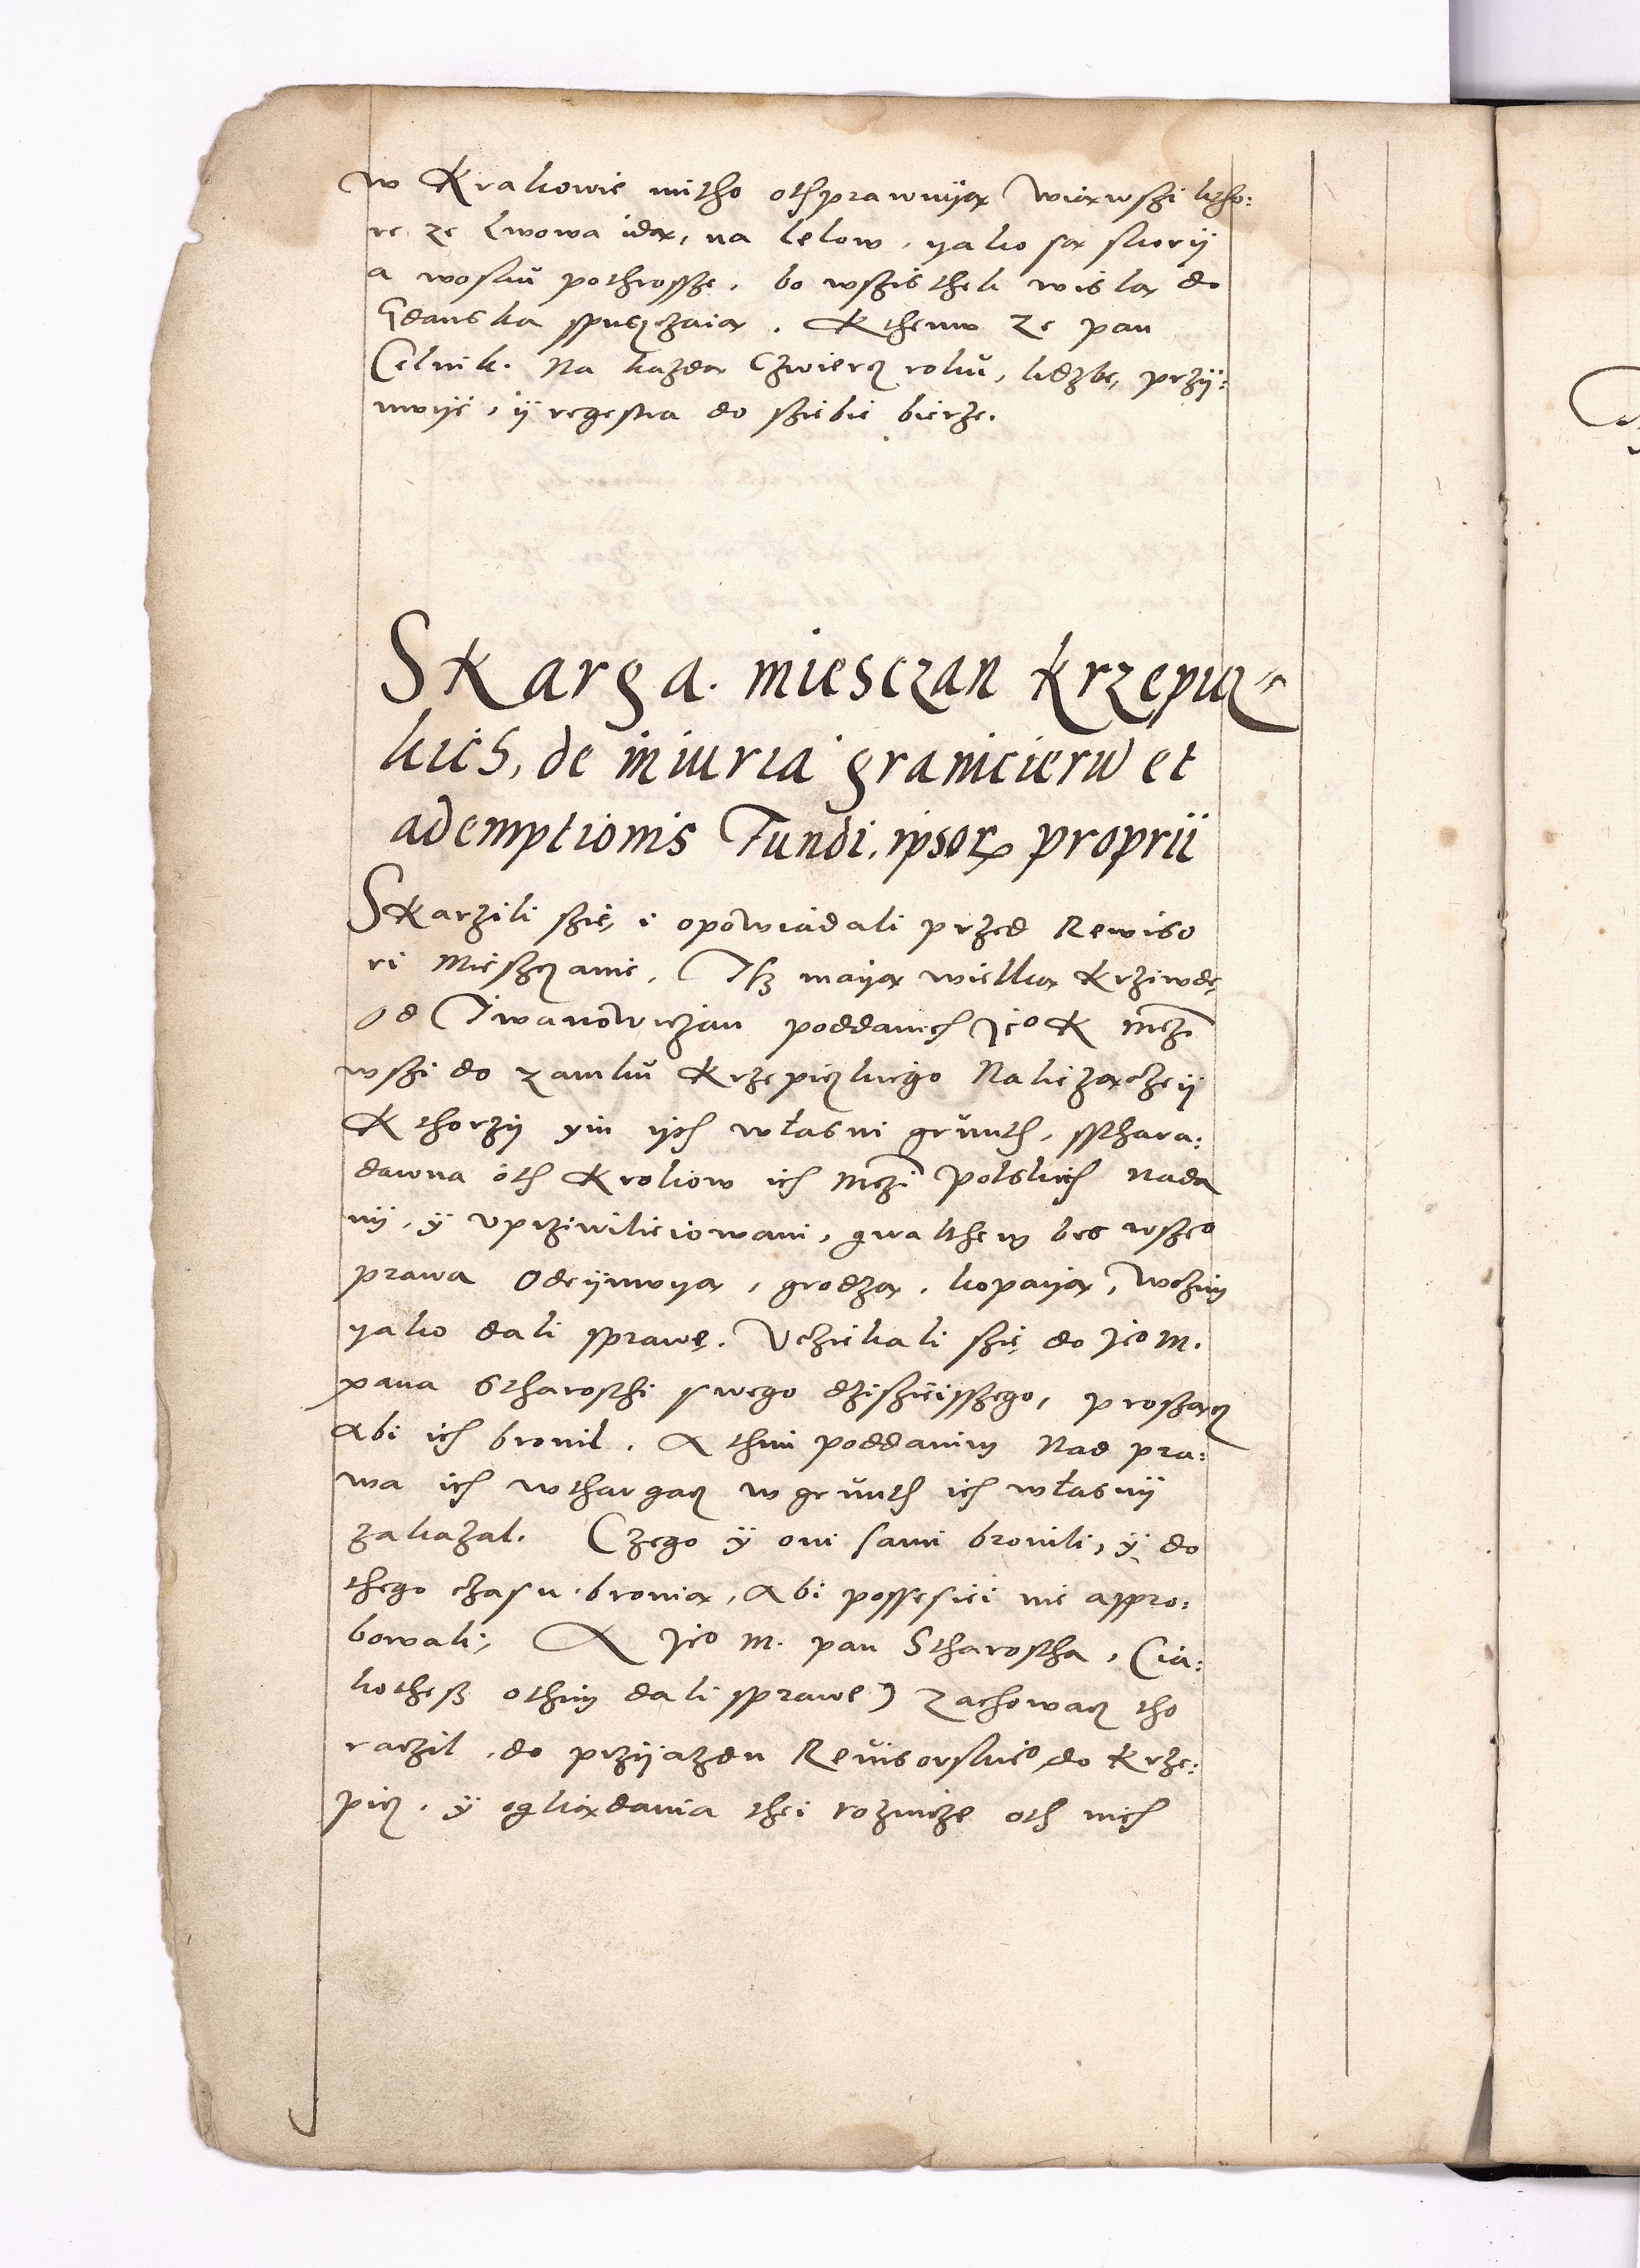 w Krakowie mitho othprawuyą Wiąwszi ktho:
re ze Lwowa idą, na lelow, yako są skorÿ
a wosku pothrossze, bo wszisthek wislą do
Gdanska spusczaią. K themu ze pan
Celnik. Na kazdą Czwiercz roku, liczbę, przÿ:
muÿe, ÿ regestra do sziebie bierze.
SKarga. miesczan Krzepicz
kich, de iniuria granicieru et
ademptionis Fundi. ipsor proprii
SKarzili szię, i opowiadali przed Rewiso
ri Mieszczanie, Isz maÿą wielką Krziwdę,
Od Iwanowiczan poddanich Jeo K Mczi
wszi do zamku Krzepiczkiego Nalezączeÿ
Kthorzÿ ym ÿch własni grunth, ssthara:
dawna oth Krolow ich Mczi polskich nada
nÿ, ÿ vprziwilieiowani, gwalthem bes wsze°
prawa Odeÿmuyą, grodzą, kopaÿą, Wczim
yako dali sprawę. Vcziekali szię do Jeo M.
pana Stharosthi swego dzisziejszego, proszącz
Abi ich bronil. A thim poddanim Nad pra:
wa ich wthargacz w grunth ich własnÿ
zakazal. Czego ÿ oni sami bronili, ÿ do
thego czasu bronią, Abi possesiei nie appro:
bowali, A Jeo M. pan Stharostha, (ia:
kothesz othim dali sprawe) zachowacz tho
raczil, do przÿazdu Revisorskieo do Krze:
picz. ÿ oglądania thei roznicze oth nich